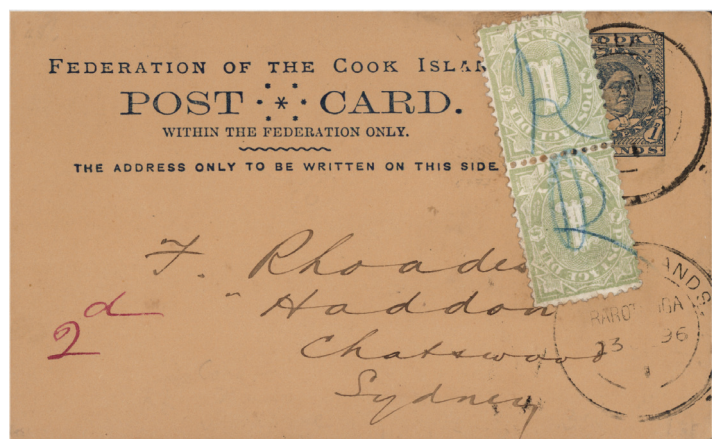 FEDERATION OF THE COOK
POST CARD.
WITHIN THE FEDERATION ONLY.
THE ADDRESS ONLY TO BE WRITTEN ON THIS SIDE
POSTAGE DUE
F. Rhodes
2d " Haddon
Chatswood
Sydney
ANDS
23 96